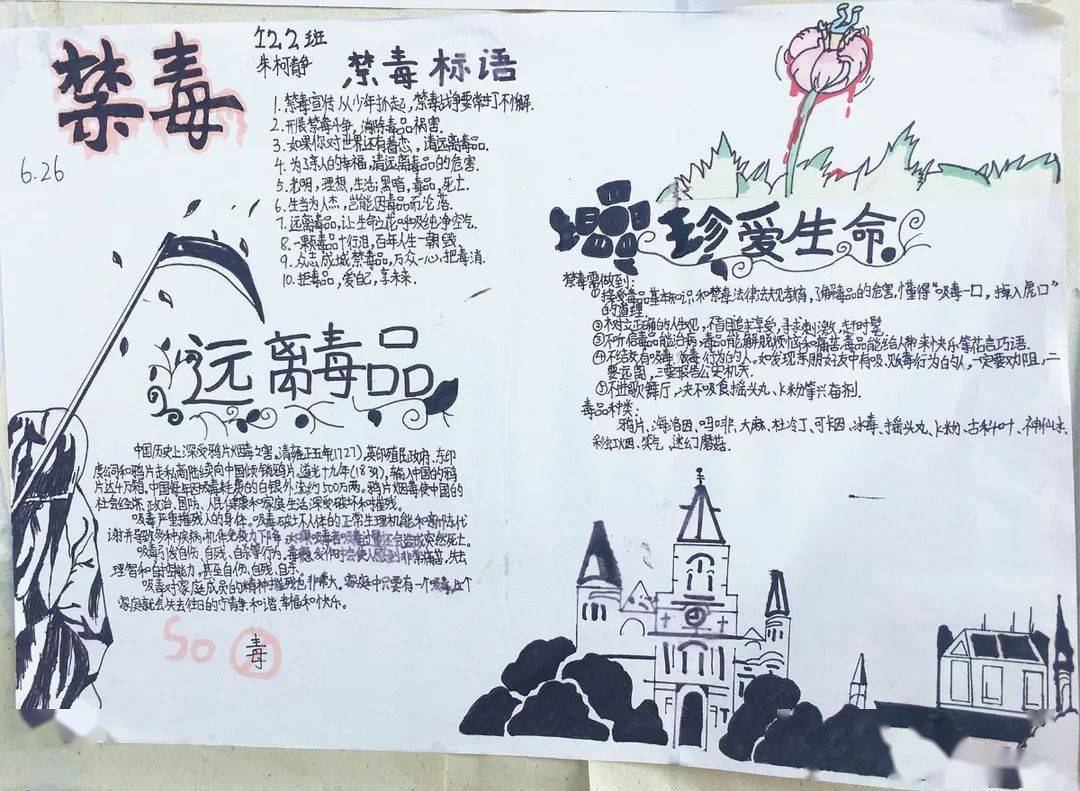 禁毒
6.26
122班
朱柯静
禁毒标语
1. 禁毒宣传从少年抓起,禁毒战争要常打不懈.
2. 开展禁毒斗争,消除毒品祸害.
3. 如果你对世界还有眷恋,请远离毒品.
4. 为了亲人的幸福,请远离毒品的危害.
5. 光明,理想,生活;黑暗,毒品,死亡.
6. 生当为人杰,岂能因毒品而沦落.
7. 远离毒品,让生命之花呼吸纯净空气.
8. 一颗毒品十行泪,百年人生一朝毁.
9. 众志成城禁毒品,万众一心,把毒消.
10. 拒毒品,爱自己,享未来.
远离毒品
中国历史上深受鸦片烟毒之害。清雍正五年(1727),英印殖民政府、东印
度公司和鸦片走私商陆续向中国倾销鸦片。道光十九年(1839),输入中国的鸦
片达4万箱。中国每年因吸毒耗费的白银外流约500万两。鸦片烟毒使中国的
社会经济、政治、国防、人民健康和家庭生活深受破坏和摧残。
吸毒严重摧残人的身体。吸毒破坏人体的正常生理机能和新陈代
谢并导致多种疾病,机体免疫力下降,如果吸毒者吸毒过量还会造成突然死亡。
吸毒引发自伤、自残、自杀等行为。毒瘾发作时会使人感到非常痛苦,失去
理智和自控能力,甚至自伤、自残、自杀。
吸毒对家庭成员的精神摧残也非常大。家庭中只要有一个吸毒,这个
家庭就会失去往日的宁静、和谐、幸福和快乐。
So
毒
珍爱生命
禁毒需做到:
①接受毒品基本知识和禁毒法律法规教育,了解毒品的危害,懂得“吸毒一口,掉入虎口”
的道理.
②树立正确的人生观,不盲目追求享受,寻求刺激,赶时髦.
③不听信毒品能治病,毒品能解脱烦恼和痛苦,毒品能给人带来快乐等花言巧语.
④不结交有吸毒、贩毒行为的人。如发现亲朋好友中有吸、贩毒行为的人,一定要劝阻,二
要远离,三要报告公安机关.
⑤不进歌舞厅,决不吸食摇头丸、K粉等兴奋剂.
毒品种类:
鸦片、海洛因、吗啡、大麻、杜冷丁、可卡因、冰毒、摇头丸、K粉、古柯叶、神仙水
笑气、迷幻蘑菇.